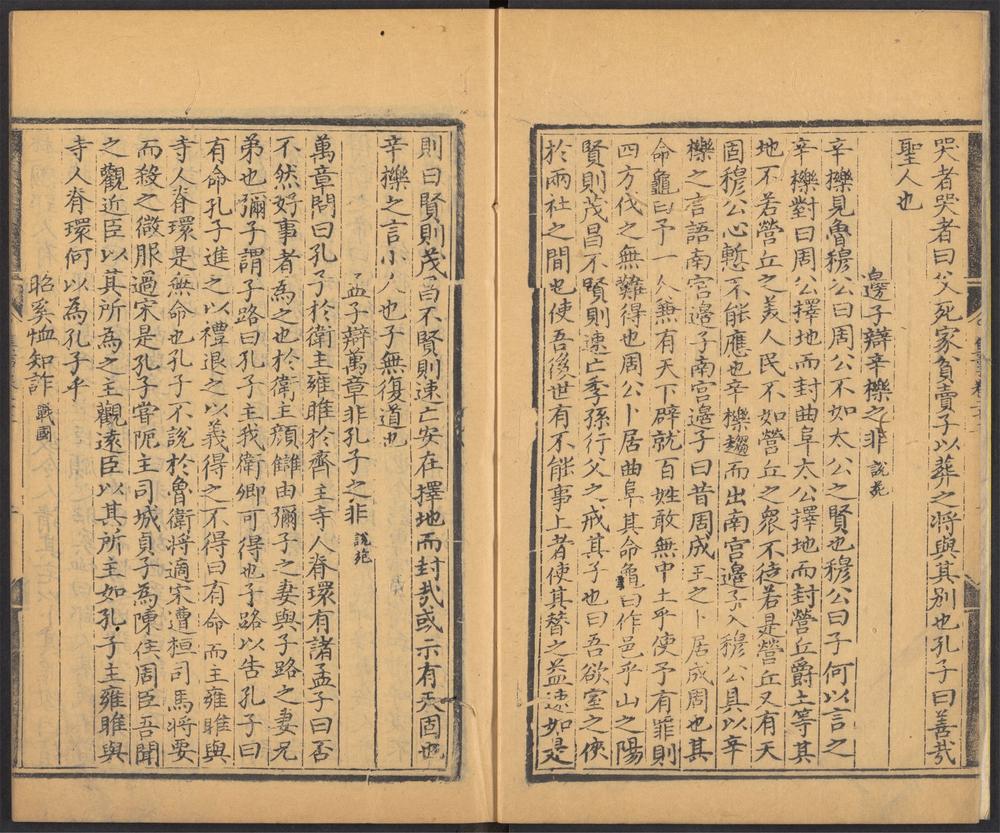 哭者哭者曰父死家貧賣子以葬之將與其別也孔子曰善哉
聖人也
邊子辯辛櫟之非 說苑
辛櫟見魯穆公曰周公不如太公之賢也穆公曰子何以言之
辛櫟對曰周公擇地而封曲阜太公擇地而封營丘爵土等其
地不若營丘之美人民不如營丘之衆不徒若是營丘又有天
固穆公心慙不能應也辛櫟趨而出南宮邊子入穆公具以辛
櫟之言語南宮邊子南宮邊子曰昔周成王之卜居成周也其
命龜曰予一人兼有天下辟就百姓敢無中土乎使予有罪則
四方伐之無難得也周公卜居曲阜其命龜曰作邑乎山之陽
賢則茂昌不賢則速亡季孫行父之戒其子也曰吾欲室之俠
於兩社之間也使吾後世有不能事上者使其替之益速如是
則曰賢則茂昌不賢則速亡安在擇地而封哉或示有天固也
辛櫟之言小人也子無復道也
孟子辯萬章非孔子之非 說苑
萬章問曰孔子於衛主雍雎於齊主寺人脊環有諸孟子曰否
不然好事者為之也於衛主顔讎由彌子之妻與子路之妻兄
弟也彌子謂子路曰孔子主我衛卿可得也子路以告孔子曰
有命孔子進之以禮退之以義得之不得曰有命而主雍雎與
寺人脊環是無命也孔子不說於魯衛將適宋遭桓司馬將要
而殺之微服過宋是孔子嘗阨主司城貞子為陳侯周臣吾聞
之觀近臣以其所為之主觀遠臣以其所主如孔子主雍雎與
寺人脊環何以為孔子乎
昭奚恤知詐 戰國